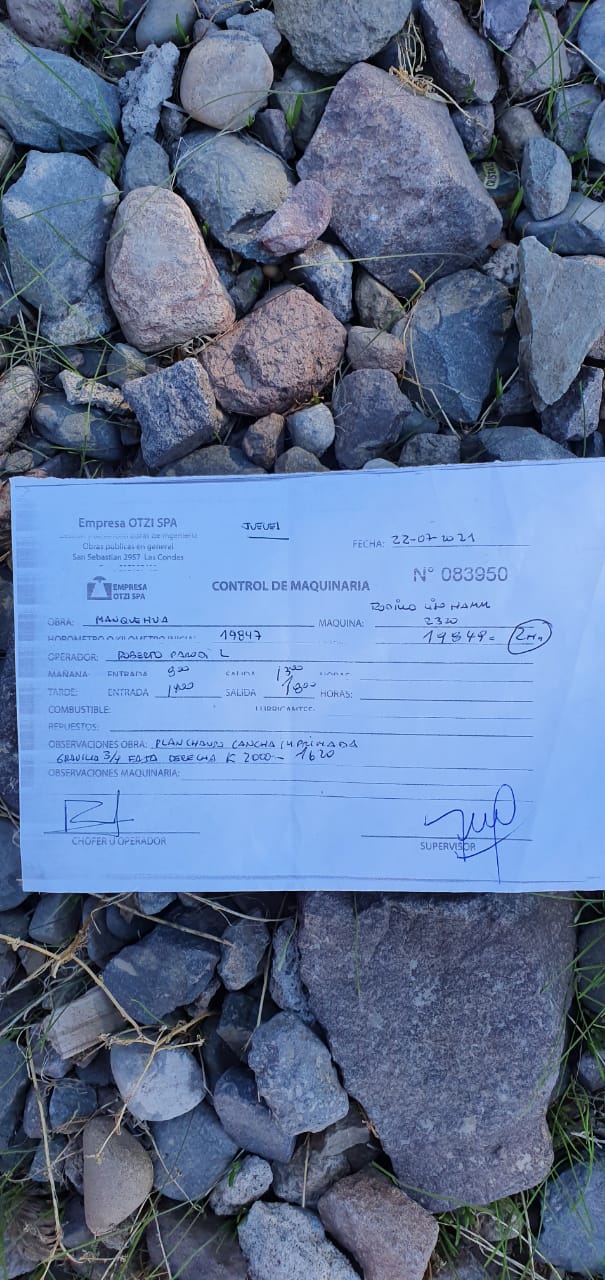 Empresa OTZI SPA
JUEVES
Obras públicas en general
San Sebastian 2957 Las Condes
FECHA: 22-07-2021
EMPRESA OTZI SPA
CONTROL DE MAQUINARIA
N° 083950
OBRA: MANQUEHUA MAQUINA: RODILLO HAMM 2320
19847 19849 = 2H
OPERADOR: ROBERTO L
MAÑANA: ENTRADA 8:00 SALIDA 13:00 HORAS:
TARDE: ENTRADA 14:00 SALIDA 18:00 HORAS:
COMBUSTIBLE: LUBRICANTES:
REPUESTOS:
OBSERVACIONES OBRA: PLANCHANDO CANCHA IMPRIMADA
GRAVILLA 3/4 FAJA DERECHA K 2000 - 1620
OBSERVACIONES MAQUINARIA:
CHOFER U OPERADOR SUPERVISOR